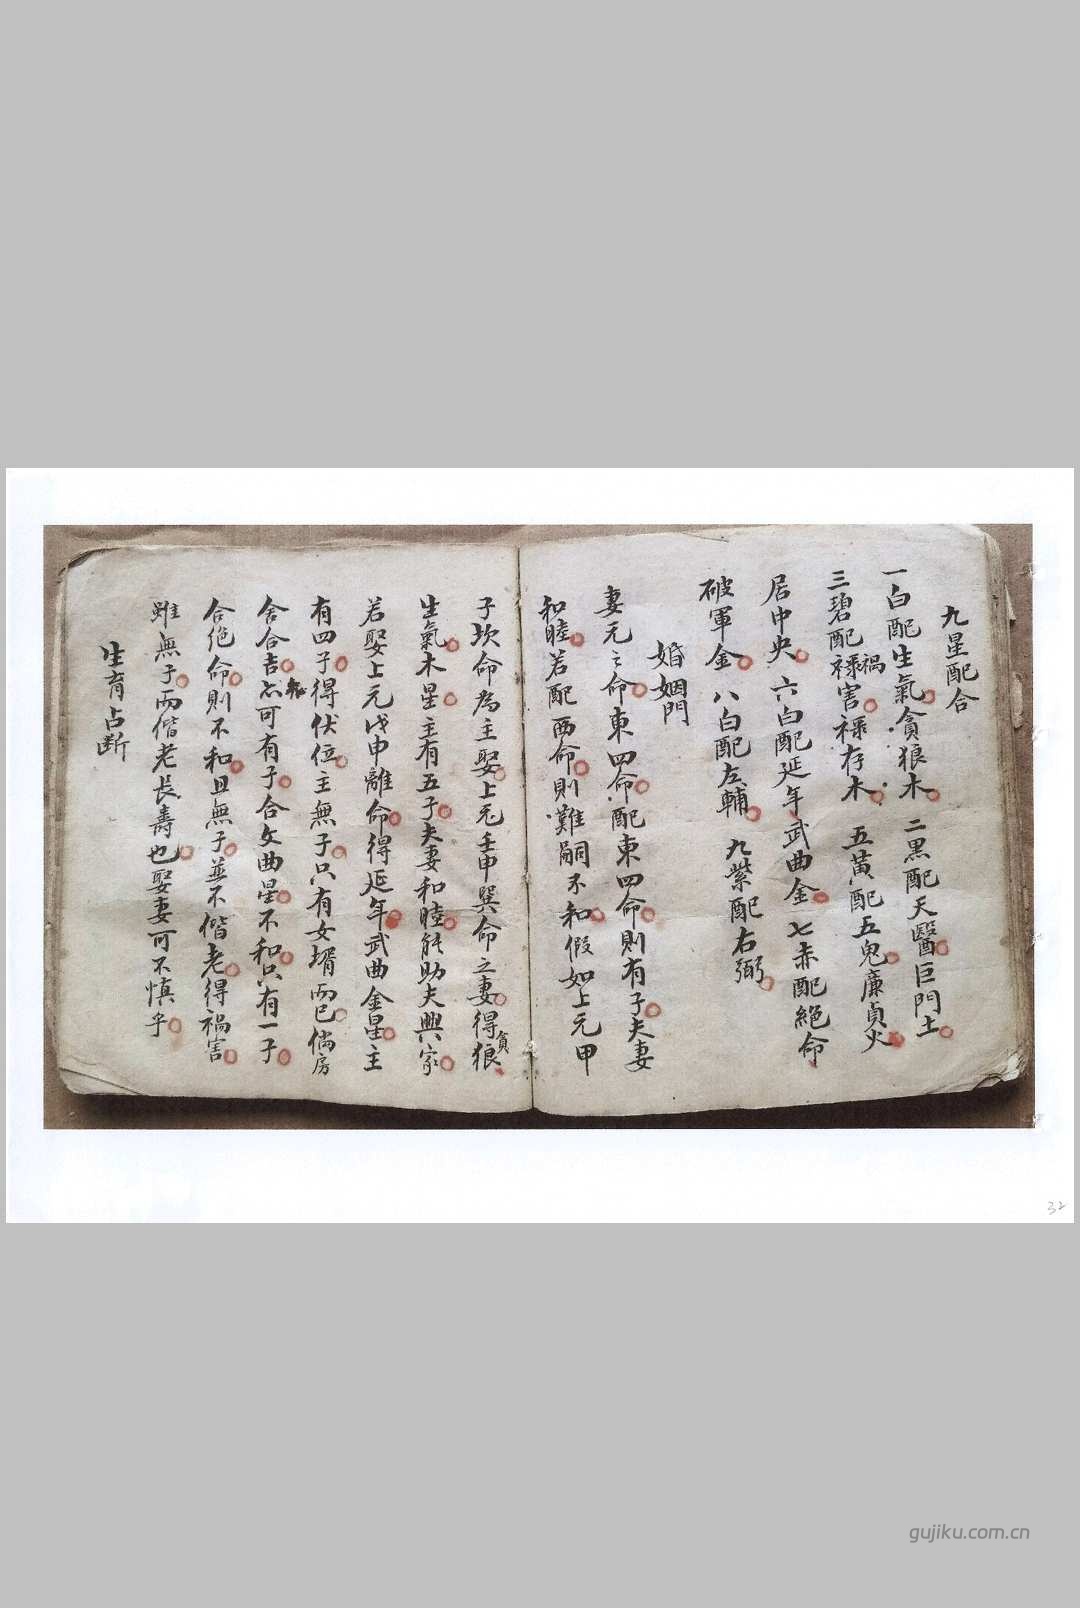 九星配合
一白配生氣貪狼木 二黑配天醫巨門土
三碧配禍祿害祿存木 五黃配五鬼廉貞火
居中央 六白配延年武曲金 七赤配絕命
破軍金 八白配左輔 九紫配右弼
婚姻門
妻元之命東四命配東四命則有子夫妻
和睦若配西命則難嗣不和假如上元甲
子坎命為主娶上元壬申巽命之妻得貪狼
生氣木星主有五子夫妻和睦能助夫興家
若娶上元戊申離命得延年武曲金星主
有四子得伏位主無子只有女壻而已倘房
舍合吉亦可有子合文曲星不和只有一子
合绝命則不和且無子並不偕老得禍害
雖無子而偕老長壽也娶妻可不慎乎
生育占斷
32
gujiku.com.cn